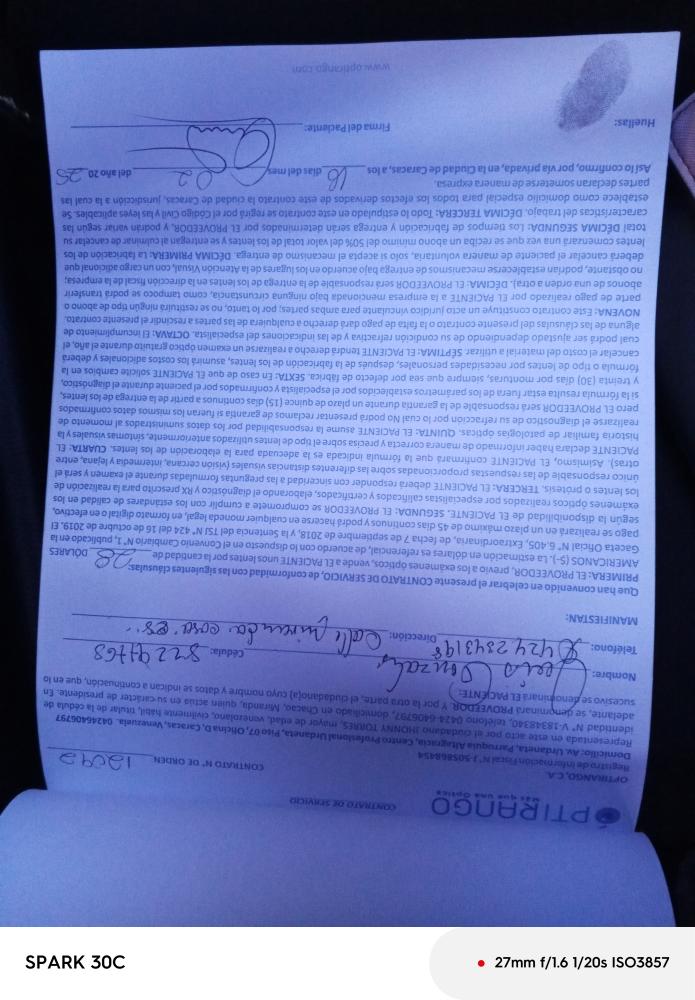 OPTIRANGO
Más que una Óptica
CONTRATO DE SERVICIO
CONTRATO N° DE ORDEN 12042
OPTIRANGO, C.A.
Registro de Información Fiscal N° J-505868454
Domicilio: Av. Urdaneta, Parroquia Altagracia, Centro Profesional Urdaneta, Piso 07, Oficina D, Caracas, Venezuela. 04246406797
Representada en este acto por el ciudadano JHONNY TORRES, mayor de edad, venezolano, civilmente hábil, titular de la cédula de
identidad N° V-18348340, teléfono 0424-6406797, domiciliado en Chacao, Miranda, quien actúa en su carácter de presidente. En
adelante, se denominará PROVEEDOR. Y por la otra parte, el ciudadano(a) cuyo nombre y datos se indican a continuación, que en lo
sucesivo se denominará EL PACIENTE:
Nombre: Cédula:
Teléfono: Dirección: Calle Miranda casa
MANIFIESTAN:
Que han convenido en celebrar el presente CONTRATO DE SERVICIO, de conformidad con las siguientes cláusulas:
PRIMERA: EL PROVEEDOR, previo a los exámenes ópticos, vende a EL PACIENTE unos lentes por la cantidad de 28 DÓLARES
AMERICANOS ($-). La estimación en dólares es referencial, de acuerdo con lo dispuesto en el Convenio Cambiario N° 1, publicado en la
Gaceta Oficial N° 6.405, Extraordinaria, de fecha 7 de septiembre de 2018, y la Sentencia del TSJ N° 424 del 16 de octubre de 2019. El
pago se realizará en un plazo máximo de 45 días continuos y podrá hacerse en cualquier moneda legal, en formato digital o en efectivo,
según la disponibilidad de EL PACIENTE. SEGUNDA: EL PROVEEDOR se compromete a cumplir con los estándares de calidad en los
exámenes ópticos realizados por especialistas calificados y certificados, elaborando el diagnóstico y RX prescrito para la realización de
los lentes o prótesis. TERCERA: EL PACIENTE deberá responder con sinceridad a las preguntas formuladas durante el examen y será el
único responsable de las respuestas proporcionadas sobre las diferentes distancias visuales (visión cercana, intermedia y lejana, entre
otras). Asimismo, EL PACIENTE confirmará que la fórmula indicada es la adecuada para la elaboración de los lentes. CUARTA: EL
PACIENTE declara haber informado de manera correcta y precisa sobre el tipo de lentes utilizados anteriormente, síntomas visuales y la
historia familiar de patologías ópticas. QUINTA: EL PACIENTE asume la responsabilidad por los datos suministrados al momento de
realizarse el diagnóstico de su refracción por lo cual No podrá presentar reclamos de garantía si fueran los mismos datos confirmados
pero EL PROVEEDOR será responsable de la garantía durante un plazo de quince (15) días continuos a partir de la entrega de los lentes,
si la fórmula resulta estar fuera de los parámetros establecidos por el especialista y confirmados por el paciente durante el diagnóstico,
y treinta (30) días por monturas, siempre que sea por defecto de fábrica. SEXTA: En caso de que EL PACIENTE solicite cambios en la
fórmula o tipo de lentes por necesidades personales, después de la fabricación de los lentes, asumirá los costos adicionales y deberá
cancelar el costo del material a utilizar. SÉPTIMA: EL PACIENTE tendrá derecho a realizarse un examen óptico gratuito durante el año, el
cual podrá ser ajustado dependiendo de su condición refractiva y de las indicaciones del especialista. OCTAVA: El incumplimiento de
alguna de las cláusulas del presente contrato o la falta de pago dará derecho a cualquiera de las partes a rescindir el presente contrato.
NOVENA: Este contrato constituye un acto jurídico vinculante para ambas partes, por lo tanto, no se restituirá ningún tipo de abono o
parte de pago realizado por EL PACIENTE a la empresa mencionada bajo ninguna circunstancia, como tampoco se podrá transferir
abonos de una orden a otra). DÉCIMA: EL PROVEEDOR será responsable de la entrega de los lentes en la dirección fiscal de la empresa;
no obstante, podrían establecerse mecanismos de entrega bajo acuerdo en los lugares de la Atención Visual, con un cargo adicional que
deberá cancelar el paciente de manera voluntaria, solo si acepta el mecanismo de entrega. DÉCIMA PRIMERA: La fabricación de los
lentes comenzará una vez que se reciba un abono mínimo del 50% del valor total de los lentes y se entregan al culminar de cancelar su
total DÉCIMA SEGUNDA: Los tiempos de fabricación y entrega serán determinados por EL PROVEEDOR, y podrán variar según las
características del trabajo. DÉCIMA TERCERA: Todo lo estipulado en este contrato se regirá por el Código Civil y las leyes aplicables. Se
establece como domicilio especial para todos los efectos derivados de este contrato la ciudad de Caracas, jurisdicción a la cual las
partes declaran someterse de manera expresa.
Así lo confirmo, por vía privada, en la Ciudad de Caracas, a los 16 días del mes 02 del año 20 25
Huellas: Firma del Paciente:
www.optirango.com
SPARK 30C
27mm f/1.6 1/20s ISO3857